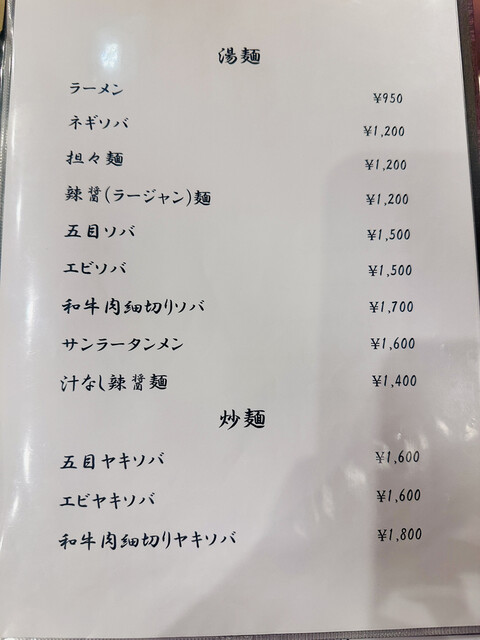 湯麺
ラーメン ¥950
ネギソバ ¥1,200
担々麺 ¥1,200
辣醤(ラージャン)麺 ¥1,200
五目ソバ ¥1,500
エビソバ ¥1,500
和牛肉細切りソバ ¥1,700
サンラータンメン ¥1,600
汁なし辣醤麺 ¥1,400
炒麺
五目ヤキソバ ¥1,600
エビヤキソバ ¥1,600
和牛肉細切りヤキソバ ¥1,800